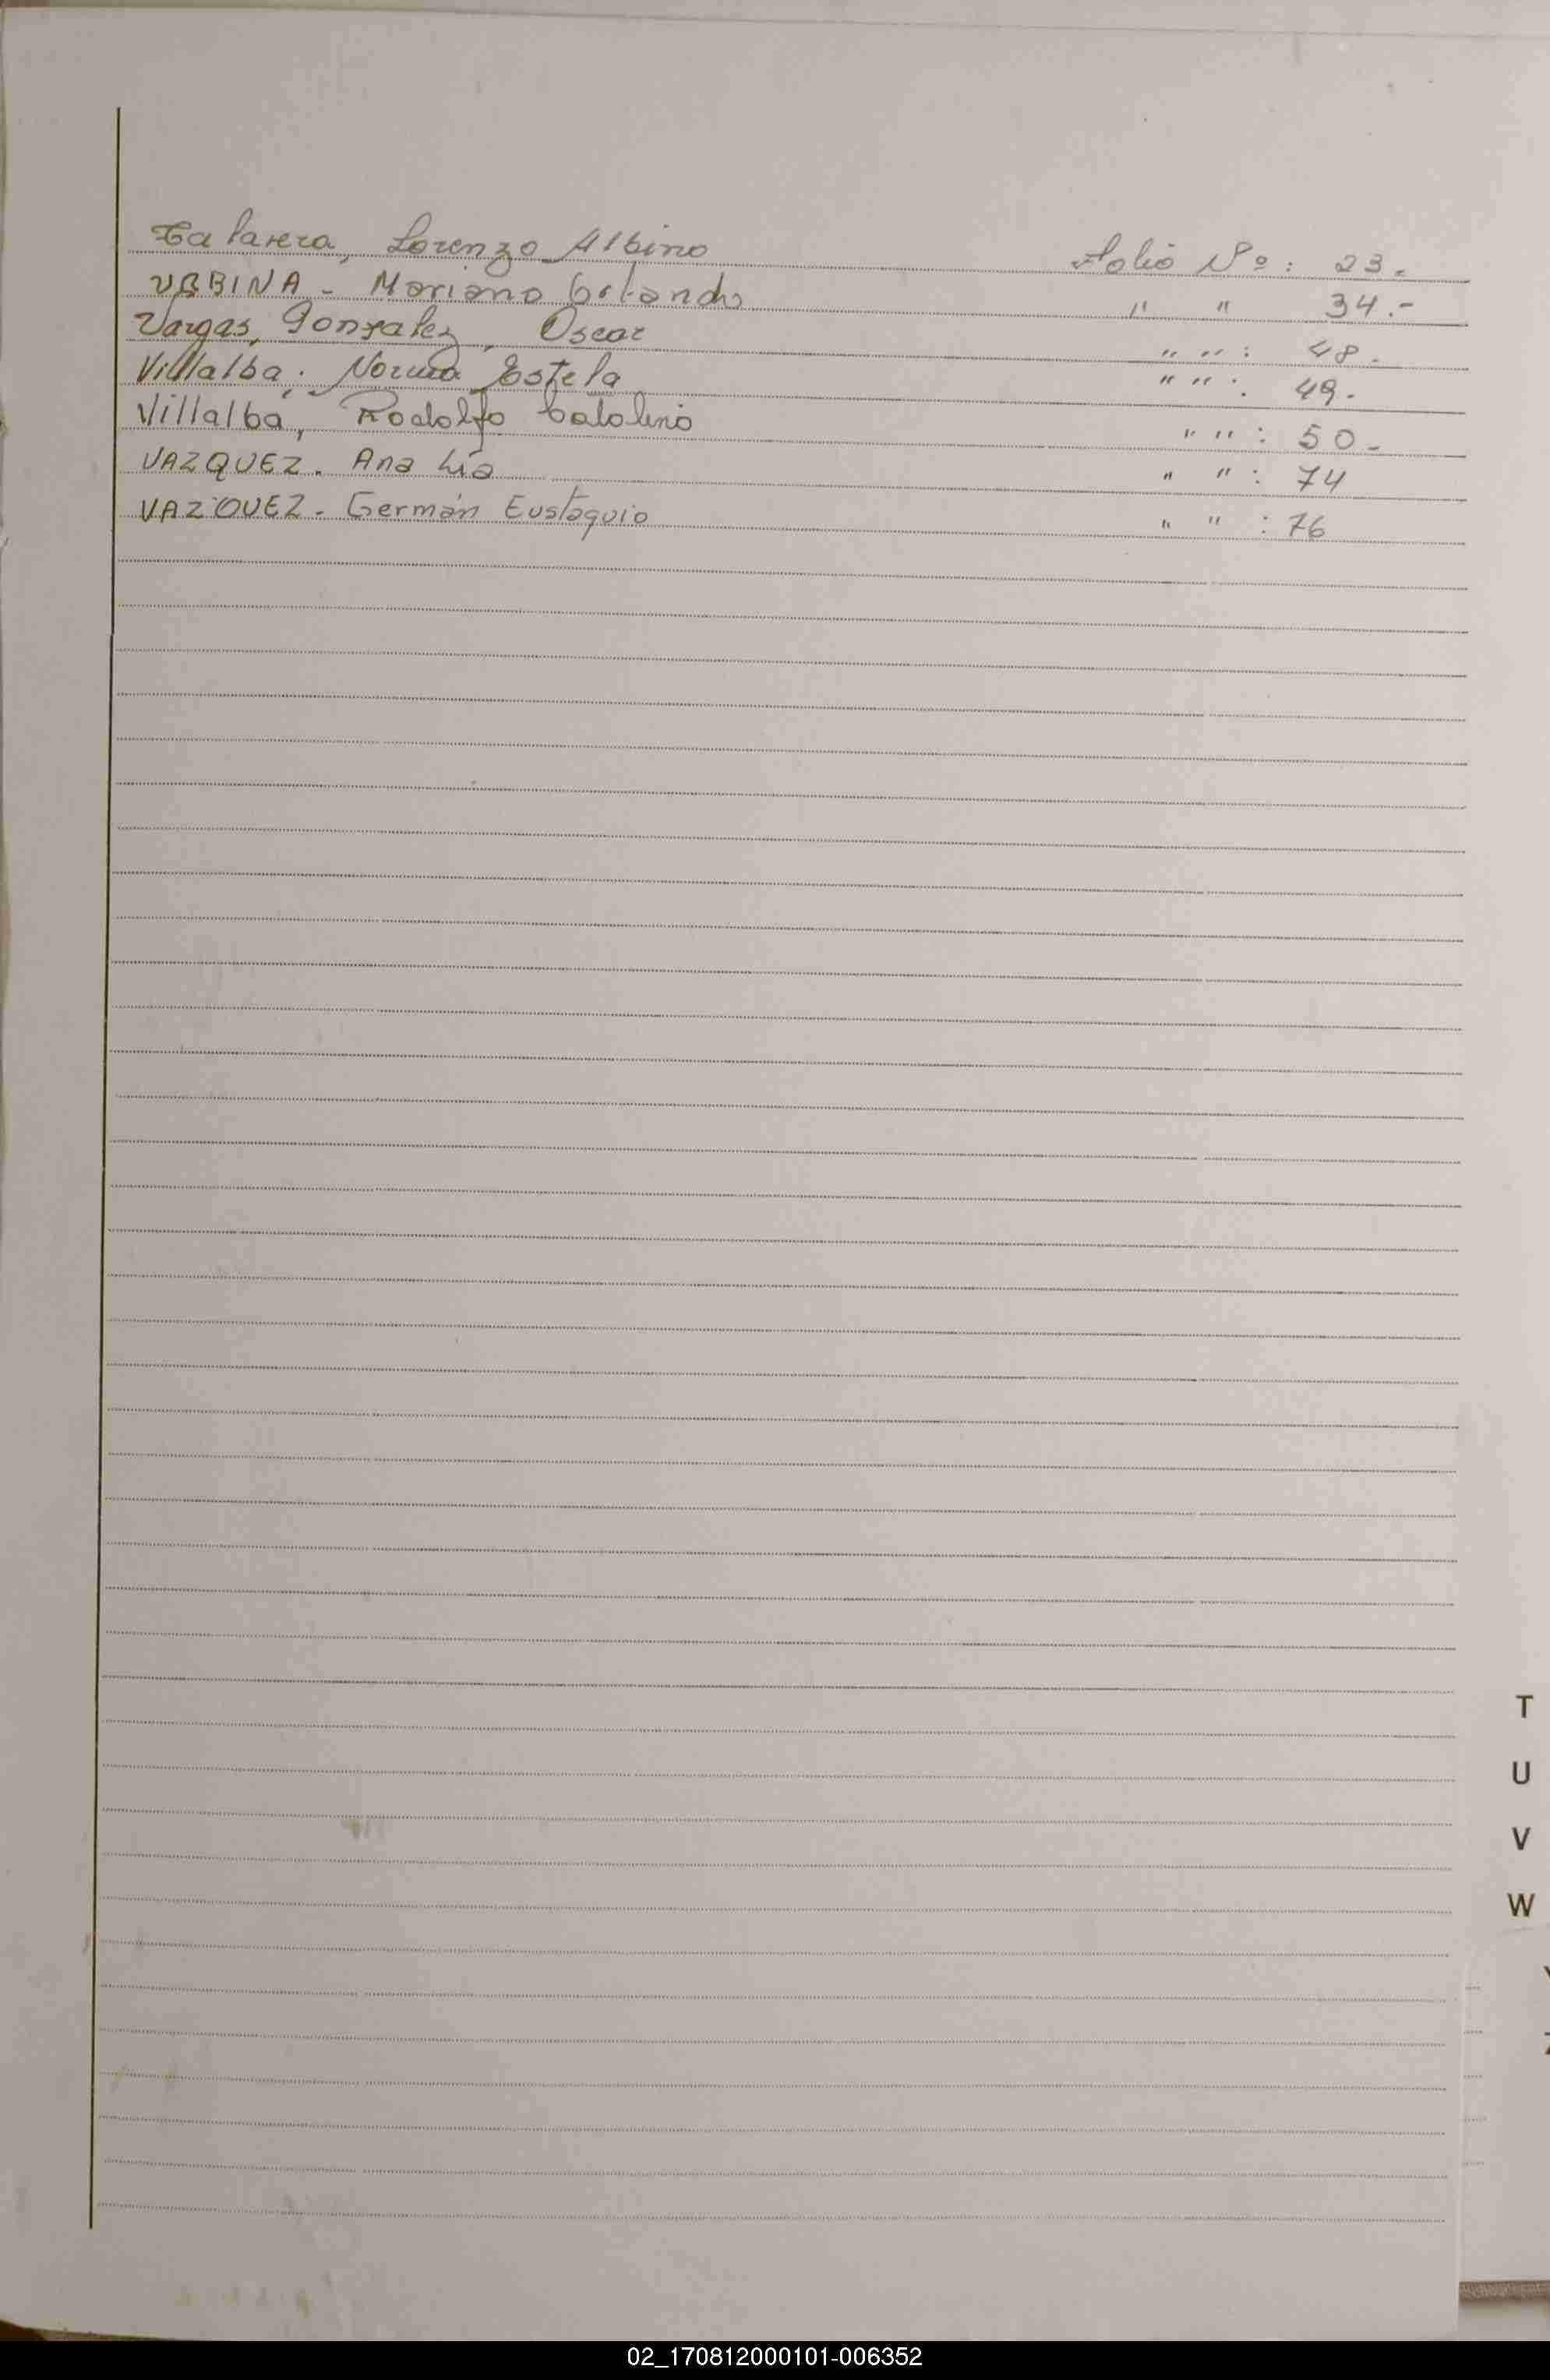 Talavera, Lorenzo Albino Folio Nº: 23.
URBINA - Mariano Orlando " " 34.-
Vargas, Gonzalez, Oscar " " : 48.
Villalba, Norma Estela " " : 49.
Villalba, Rodolfo Catalino " " : 50.
VAZQUEZ. Ana Lía " " : 74
VAZQUEZ. Germán Eustaquio " " : 76
T
U
V
W
02_170812000101-006352